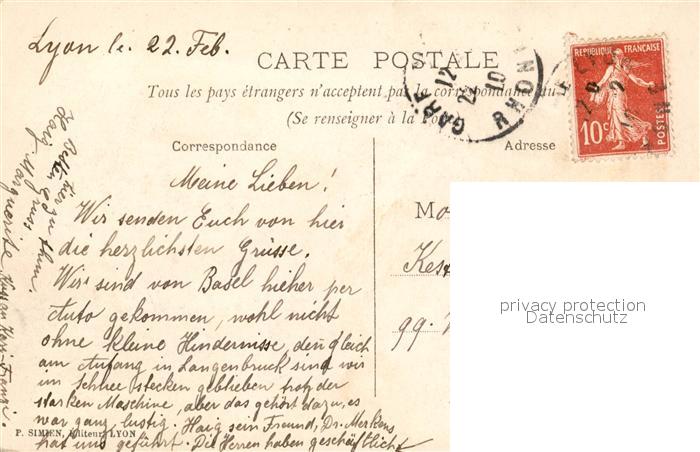 Lyon le. 22. Feb.
CARTE POSTALE
Tous les pays étrangers n'acceptent pas la correspondance au
(Se renseigner à la Po
REPUBLIQUE FRANÇAISE
10c
POSTES
GARE
RHONE
12
22
10
Correspondance
Adresse
Meine Lieben!
Wir senden Euch von hier
die herzlichsten Grüsse.
Wir sind von Basel hieher per
Auto gekommen, wohl nicht
ohne kleine Hindernisse, denn gleich
am Anfang in Langenbruck sind wir
im Schnee stecken geblieben trotz der
starken Maschine, aber das gehört dazu, es
war ganz lustig. Haig sein Freund, Dr. Merkens
hat uns geführt. Die Herren haben geschäftlich
hier zu thun.
Gruss
Marguerite
Kuss an
P. SIMIEN, Editeur, LYON
Mo
Kes
99.
privacy protection
Datenschutz